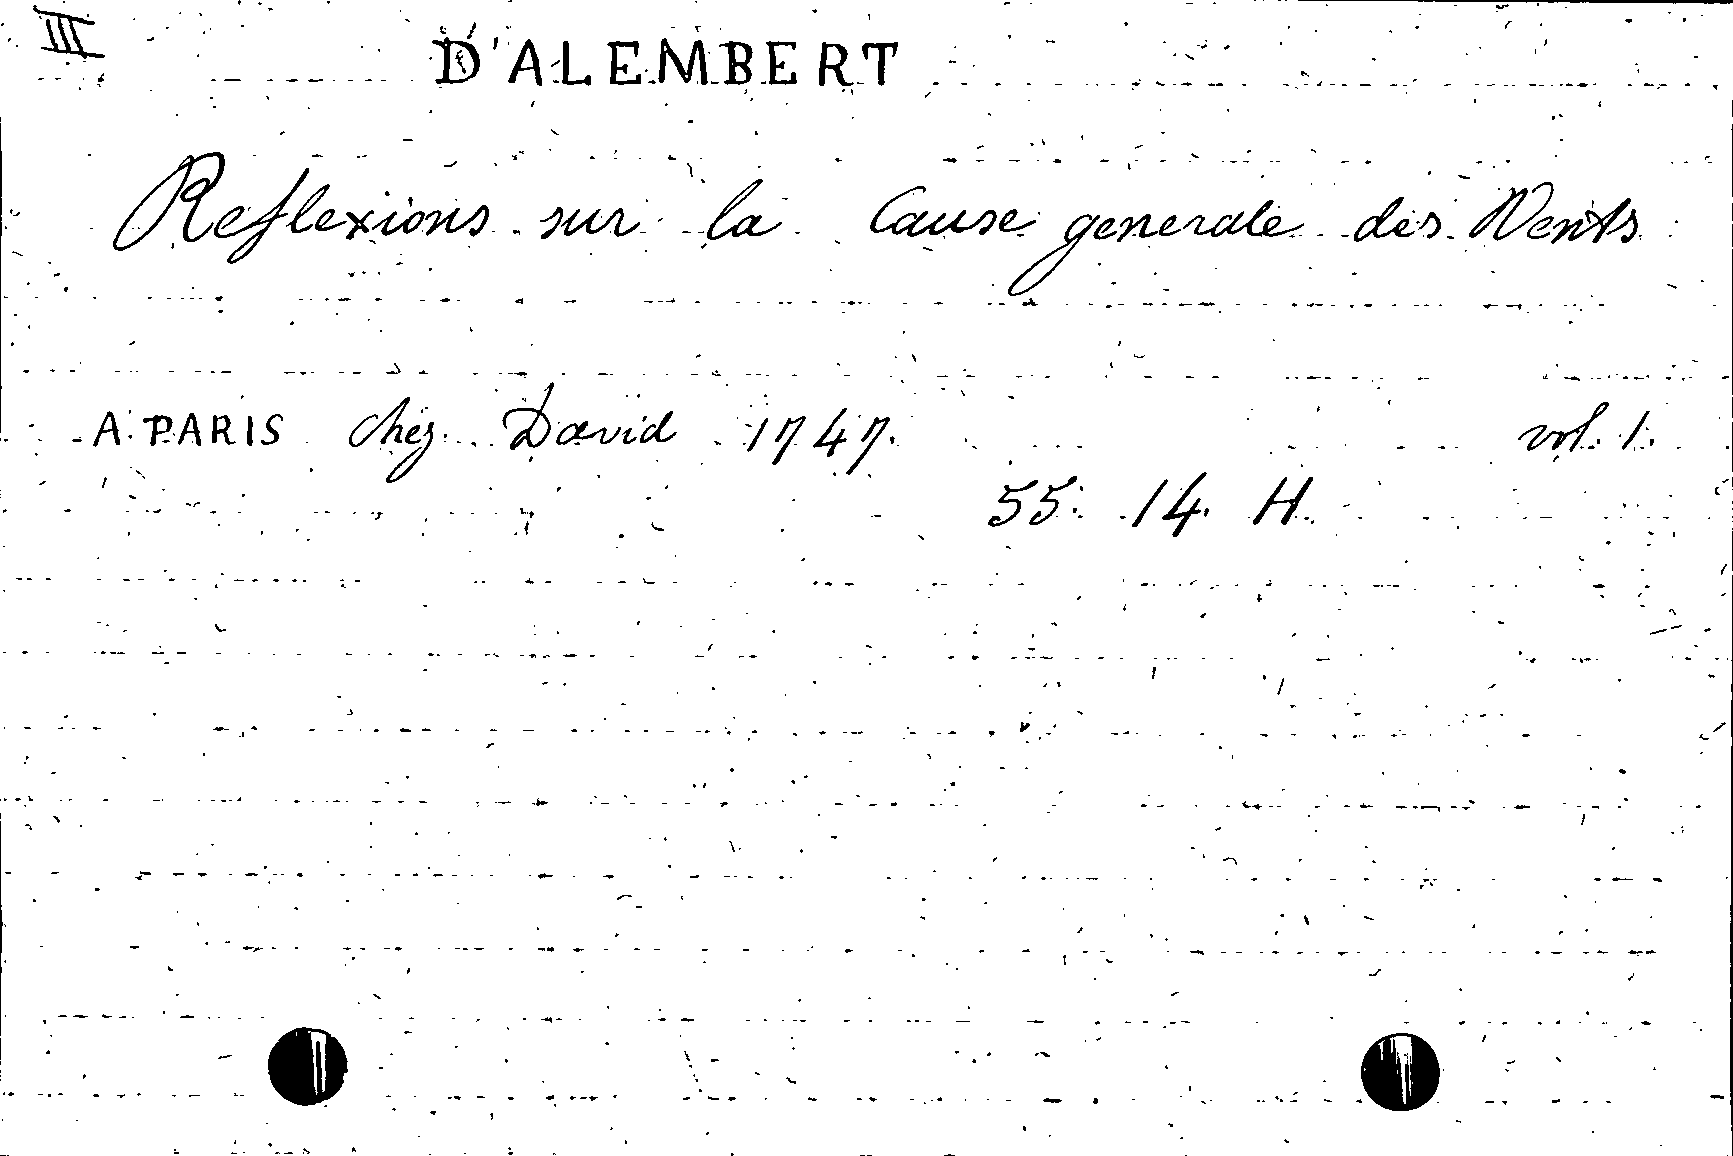 III
D'ALEMBERT
Reflexions sur la Cause generale des Vents
A PARIS chez David 1747. vol. 1.
55. 14. H.